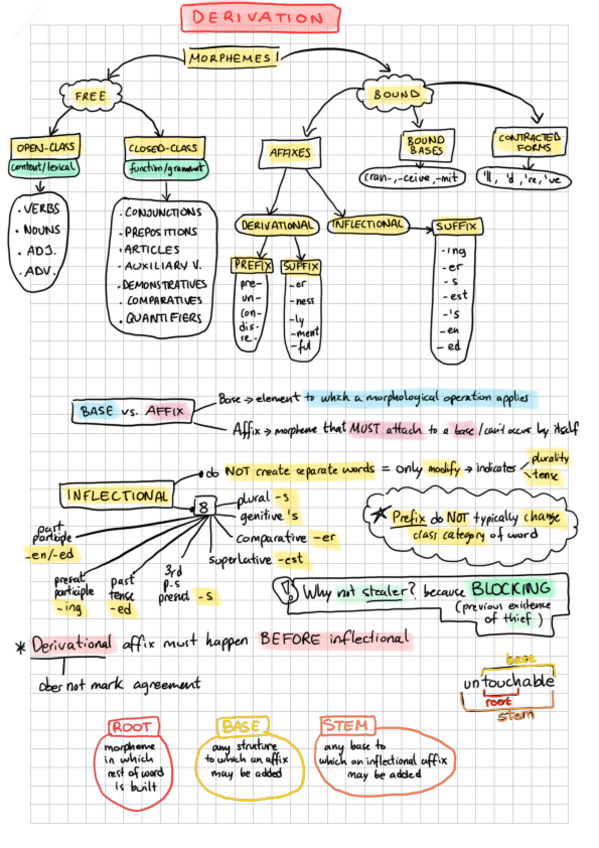 DERIVATION
MORPHEMES
FREE
BOUND
OPEN-CLASS
content/lexical
CLOSED-CLASS
function/grammat
AFFIXES
BOUND
BASES
CONTRACTED
FORMS
cran-, -ceive, -mit
'll, 'd, 're, 've
. VERBS
. NOUNS
. ADJ.
. ADV.
. CONJUNCTIONS
. PREPOSITIONS
. ARTICLES
. AUXILIARY V.
. DEMONSTRATIVES
. COMPARATIVES
. QUANTIFIERS
DERIVATIONAL
INFLECTIONAL
SUFFIX
PREFIX
SUFFIX
pre-
un-
con-
dis-
re-
-er
-ness
-ly
-ment
-ful
-ing
-er
-s
-est
-'s
-en
-ed
BASE vs. AFFIX
Base → element to which a morphological operation applies
Affix → morpheme that MUST attach to a base / can't occur by itself
INFLECTIONAL
do NOT create separate words = only modify → indicates
plurality
tense
8
plural -s
genitive 's
comparative -er
superlative -est
3rd
p.s
present -s
past
tense
-ed
present
participle
-ing
past
participle
-en/-ed
* Prefix do NOT typically change
class category of word
! Why not stealer? because BLOCKING
(previous existence
of thief)
* Derivational affix must happen BEFORE inflectional
does not mark agreement
base
untouchable
root
stem
ROOT
morpheme
in which
rest of word
is built
BASE
any struture
to which an affix
may be added
STEM
any base to
which an inflectional affix
may be added